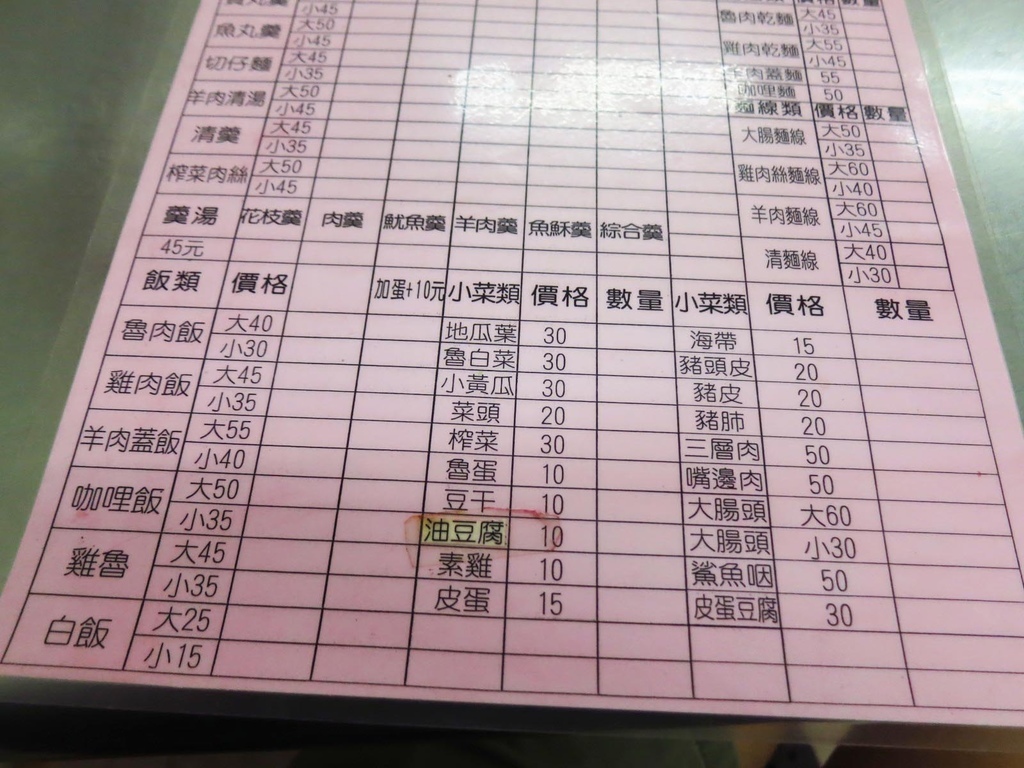 小45
魚丸羹 大50
小45
切仔麵 大45
小35
羊肉清湯 大50
小45
清羹 大45
小35
榨菜肉絲 大50
小45
價格 數量
魯肉乾麵 大45
小35
雞肉乾麵 大55
小45
羊肉蓋麵 55
咖哩麵 50
麵線類 價格 數量
大腸麵線 大50
小35
雞肉絲麵線 大60
小40
羊肉麵線 大60
小45
清麵線 大40
小30
羹湯 花枝羹 肉羹 魷魚羹 羊肉羹 魚酥羹 綜合羹
45元
飯類 價格 加蛋+10元
魯肉飯 大40
小30
雞肉飯 大45
小35
羊肉蓋飯 大55
小40
咖哩飯 大50
小35
雞魯 大45
小35
白飯 大25
小15
小菜類 價格 數量
地瓜葉 30
魯白菜 30
小黃瓜 30
菜頭 20
榨菜 30
魯蛋 10
豆干 10
油豆腐 10
素雞 10
皮蛋 15
小菜類 價格 數量
海帶 15
豬頭皮 20
豬皮 20
豬肺 20
三層肉 50
嘴邊肉 50
大腸頭 大60
大腸頭 小30
鯊魚咽 50
皮蛋豆腐 30